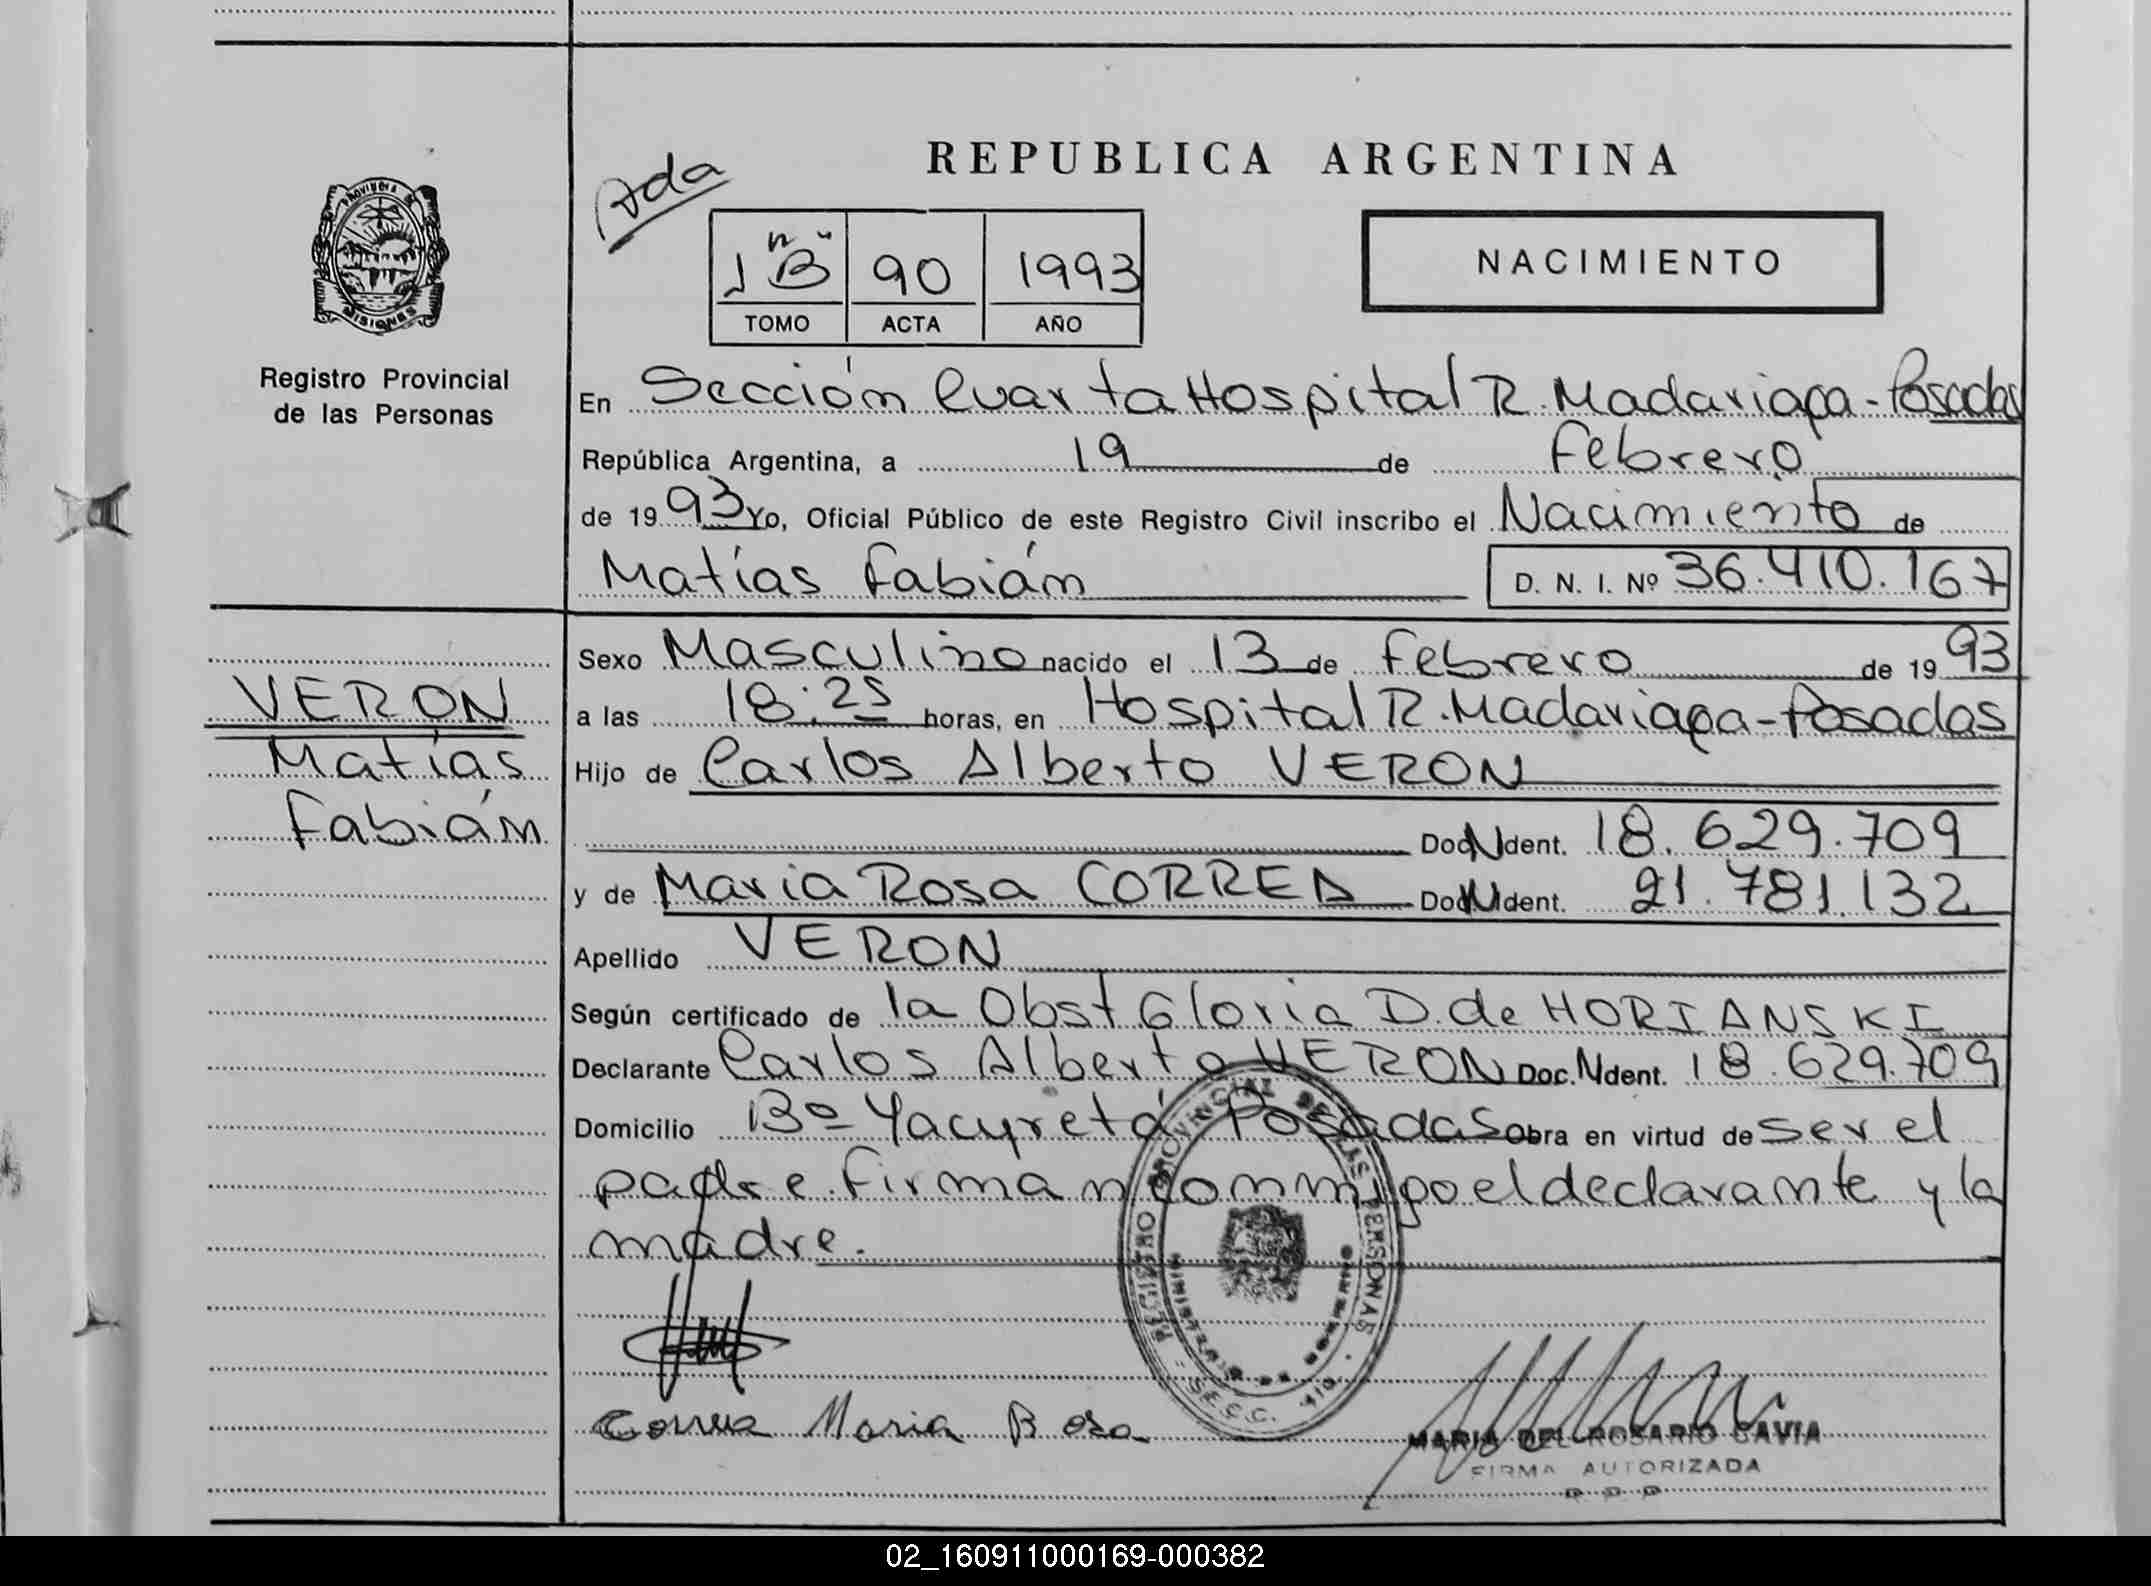 REPUBLICA ARGENTINA
Ada
1 "B" 90 1993
TOMO ACTA AÑO
NACIMIENTO
PROVINCIA DE MISIONES
Registro Provincial
de las Personas
En Sección Cuarta Hospital R. Madariaga - Posadas
República Argentina, a 19 de Febrero
de 1993 Yo, Oficial Público de este Registro Civil inscribo el Nacimiento de
Matías Fabián D. N. I. Nº 36.410.167
VERON
Matías
Fabián
Sexo Masculino nacido el 13 de Febrero de 1993
a las 18:25 horas, en Hospital R. Madariaga - Posadas
Hijo de Carlos Alberto VERON
Doc. N Ident. 18.629.709
y de Maria Rosa CORREA Doc. N Ident. 21.781.132
Apellido VERON
Según certificado de la Obst Gloria D. de HORIANSKI
Declarante Carlos Alberto VERON Doc. N Ident. 18.629.709
Domicilio Bº Yacyretá Posadas Obra en virtud de ser el
padre. Firman conmigo el declarante y la
madre.
REGISTRO PROVINCIAL DE LAS PERSONAS
SECC. 4ta
Correa Maria Rosa
MARIA DEL ROSARIO GAVIA
FIRMA AUTORIZADA
02_160911000169-000382